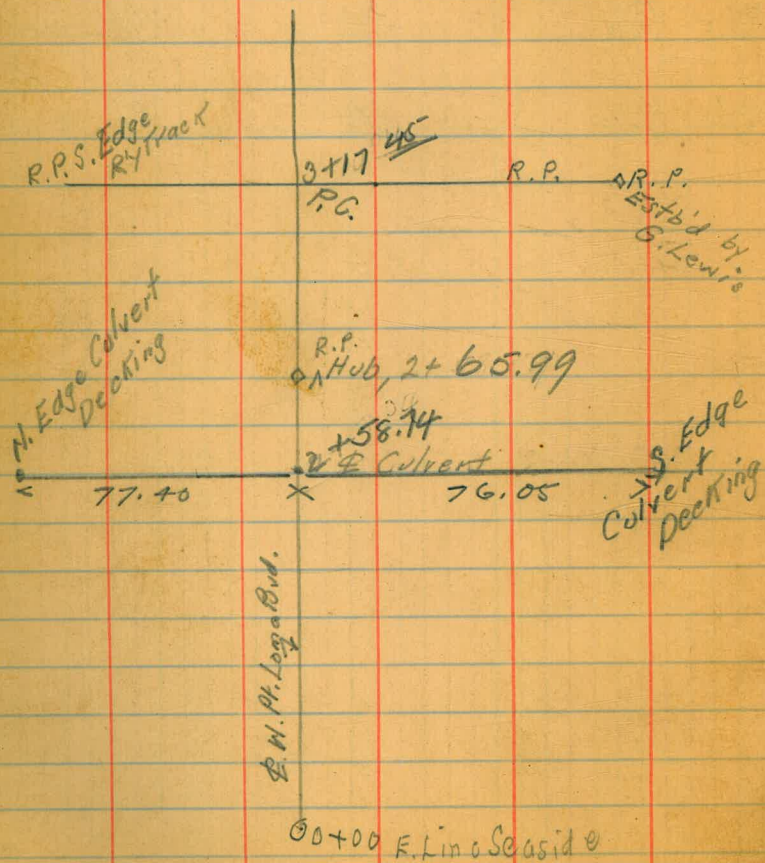 R.P. S. Edge
Ry Track
3+17 45
P.C.
R.P.
R.P.
Estb'd by
G. Lewis
N. Edge Culvert
Decking
R.P.
Hub, 2+65.99
2+58.74
℄ Culvert
77.40
76.05
S. Edge
Culvert
Decking
℄ W. Pt. Loma Bvd.
0+00 E. Line Seaside